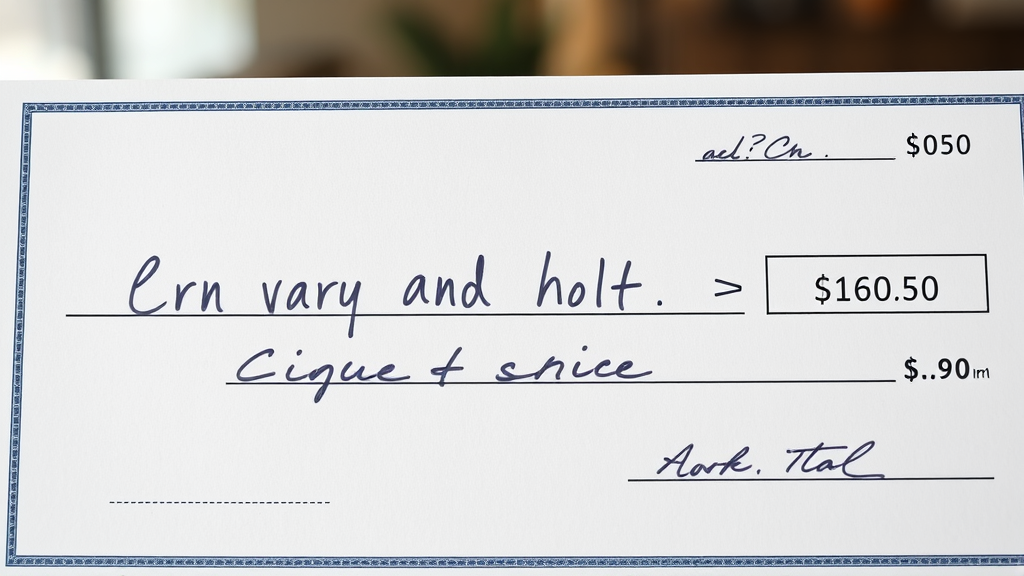 ael? Cn. $050
Ern vary and holt. > $160.50
Cique & snice $..90im
Aork. Ttal